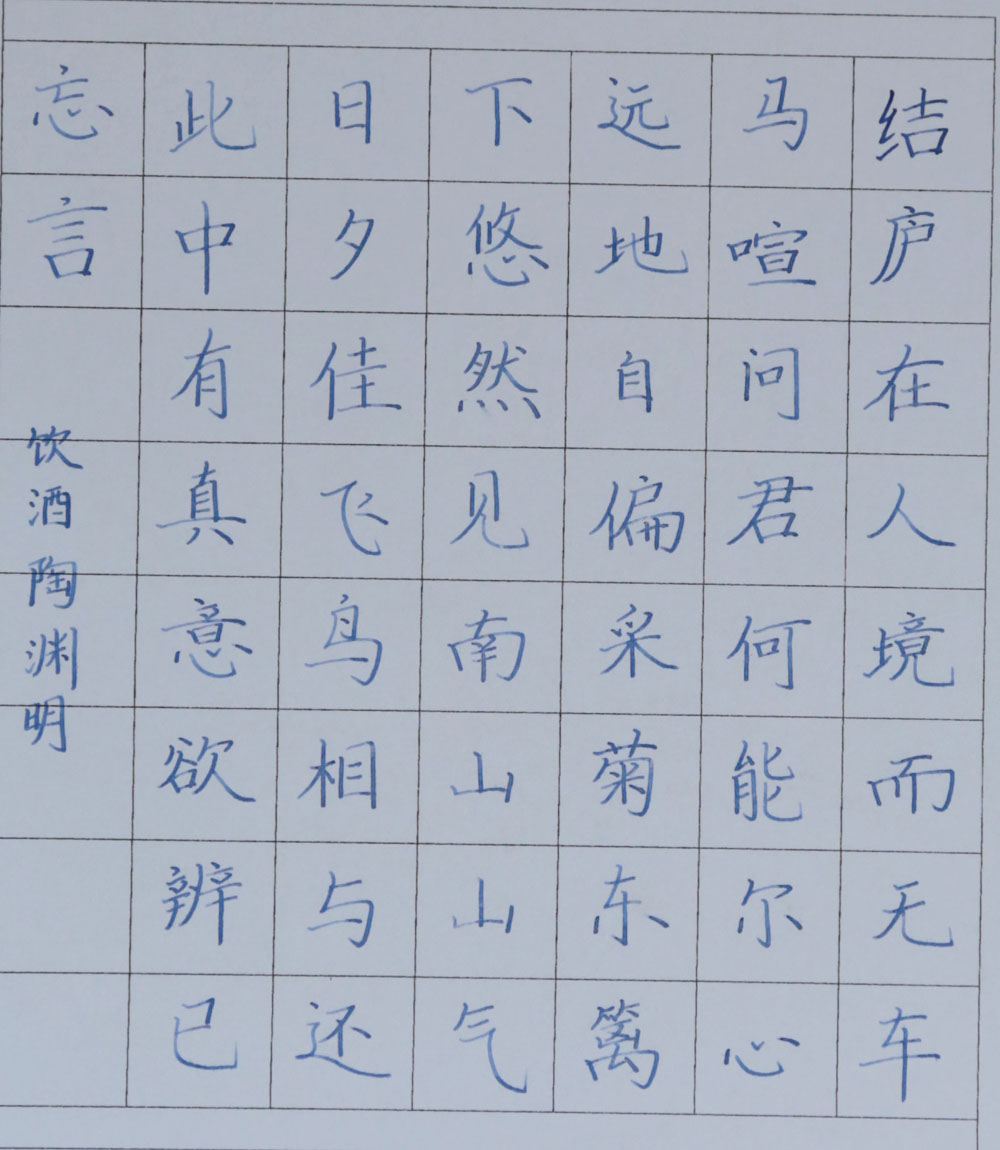 结庐在人境而无车
马喧问君何能尔心
远地自偏采菊东篱
下悠然见南山山气
日夕佳飞鸟相与还
此中有真意欲辨已
忘言
饮酒陶渊明